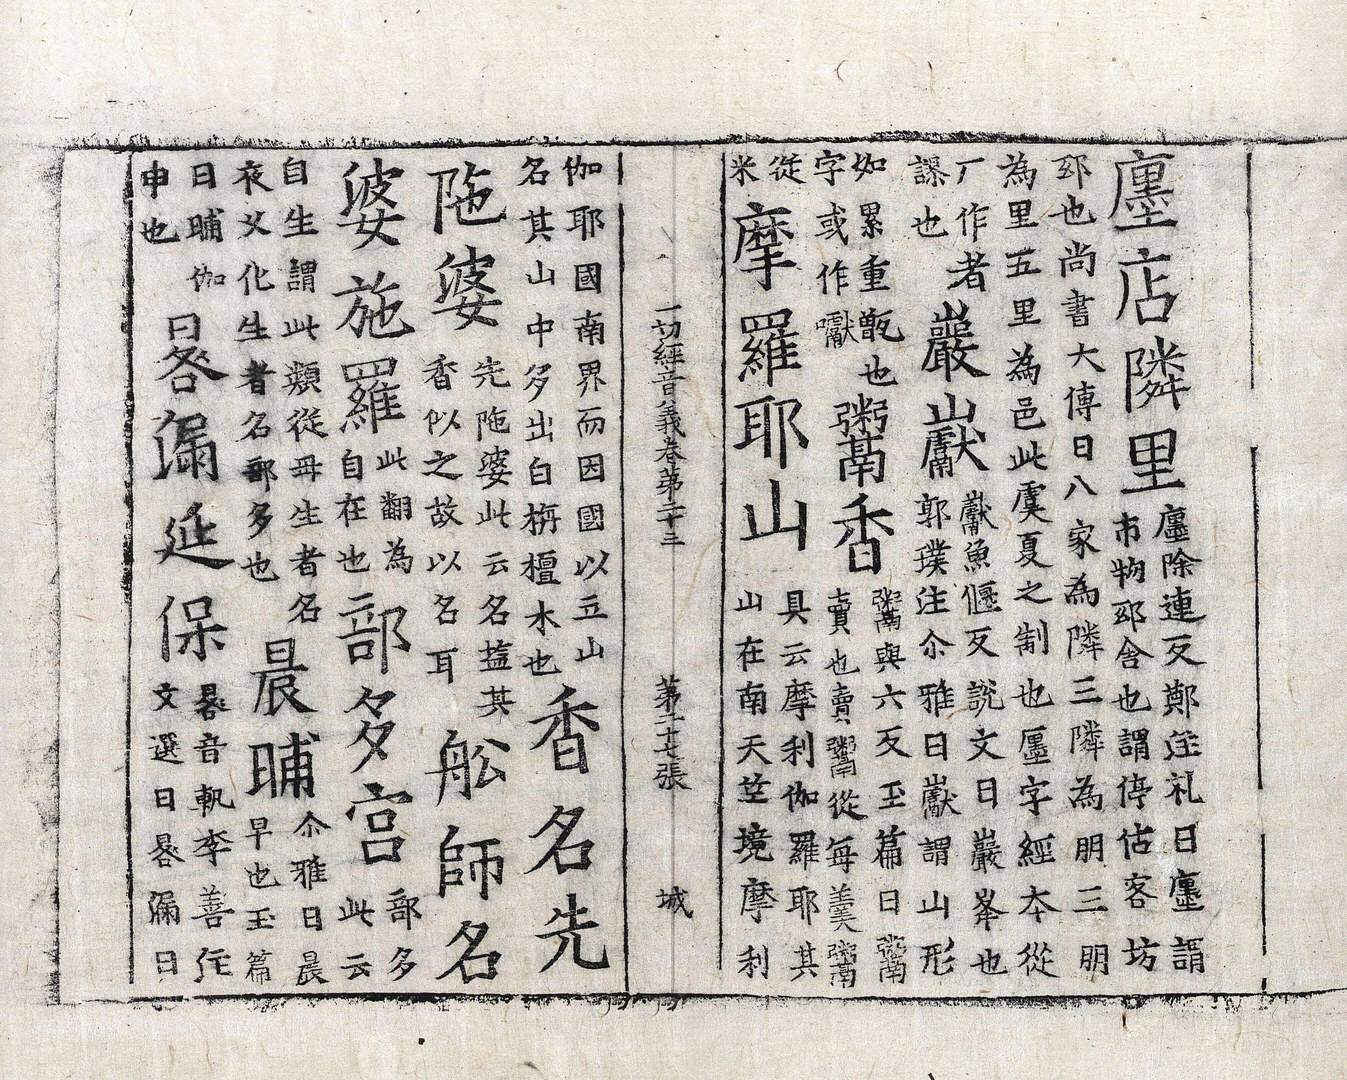 廛店隣里
廛除連反鄭注礼曰廛謂
市物邸舍也謂停估客坊
邸也尚書大傳曰八家為隣三隣為朋三朋
為里五里為邑此虞夏之制也廛字經本從
厂作者
謬也
巖巘
巘魚偃反說文曰巖峯也
郭璞注尒雅曰巘謂山形
如累重甑也
字或作㘛
鬻香
鬻與六反玉篇曰鬻
賣也賣鬻從每羹鬻
從
米
摩羅耶山
具云摩利伽羅耶其
山在南天竺境摩利
一切經音義卷第二十三 第二十七張 城
伽耶國南界而因國以立山
名其山中多出白栴檀木也
香名先
陁婆
先陁婆此云名塩其
香似之故以名耳
舩師名
婆施羅
此翻為
自在也
部多宫
部多
此云
自生謂此類從母生者名
夜叉化生者名部多也
晨晡
尒雅曰晨
早也玉篇
曰晡伽
申也
晷漏延保
晷音軌李善注
文選曰晷漏曰